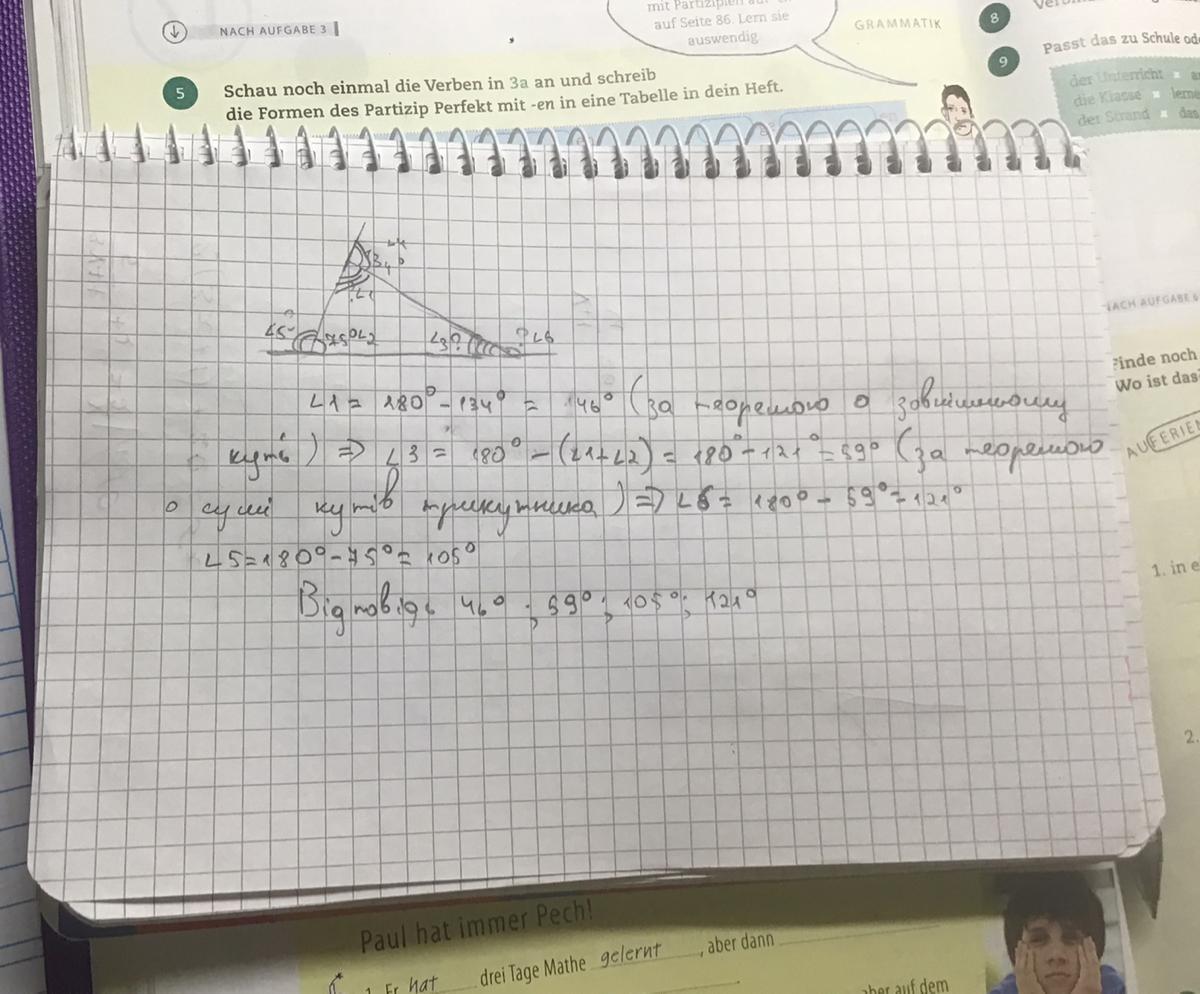 NACH AUFGABE 3
mit Partizipien auf
auf Seite 86. Lern sie
auswendig
GRAMMATIK
8
9
Passt das zu Schule
der Unterricht
die Klasse ▪ lerne
der Strand ▪ das
5 Schau noch einmal die Verben in 3a an und schreib
die Formen des Partizip Perfekt mit -en in eine Tabelle in dein Heft.
∠4
134°
?∠1
∠5 75°∠2 ∠3? ?∠6
∠1 = 180° - 134° = 46° (за теоремою о зовнішньому
куті) => ∠3 = 180° - (∠1+∠2) = 180° - 121° = 59° (за теоремою
о сумі кутів трикутника) => ∠6 = 180° - 59° = 121°
∠5 = 180° - 75° = 105°
Відповідь 46° ; 59° ; 105° ; 121°
NACH AUFGABE 6
Finde noch
Wo ist das
AUF FERIEN
1. in e
2.
Paul hat immer Pech!
1. Er hat drei Tage Mathe gelernt, aber dann
aber auf dem